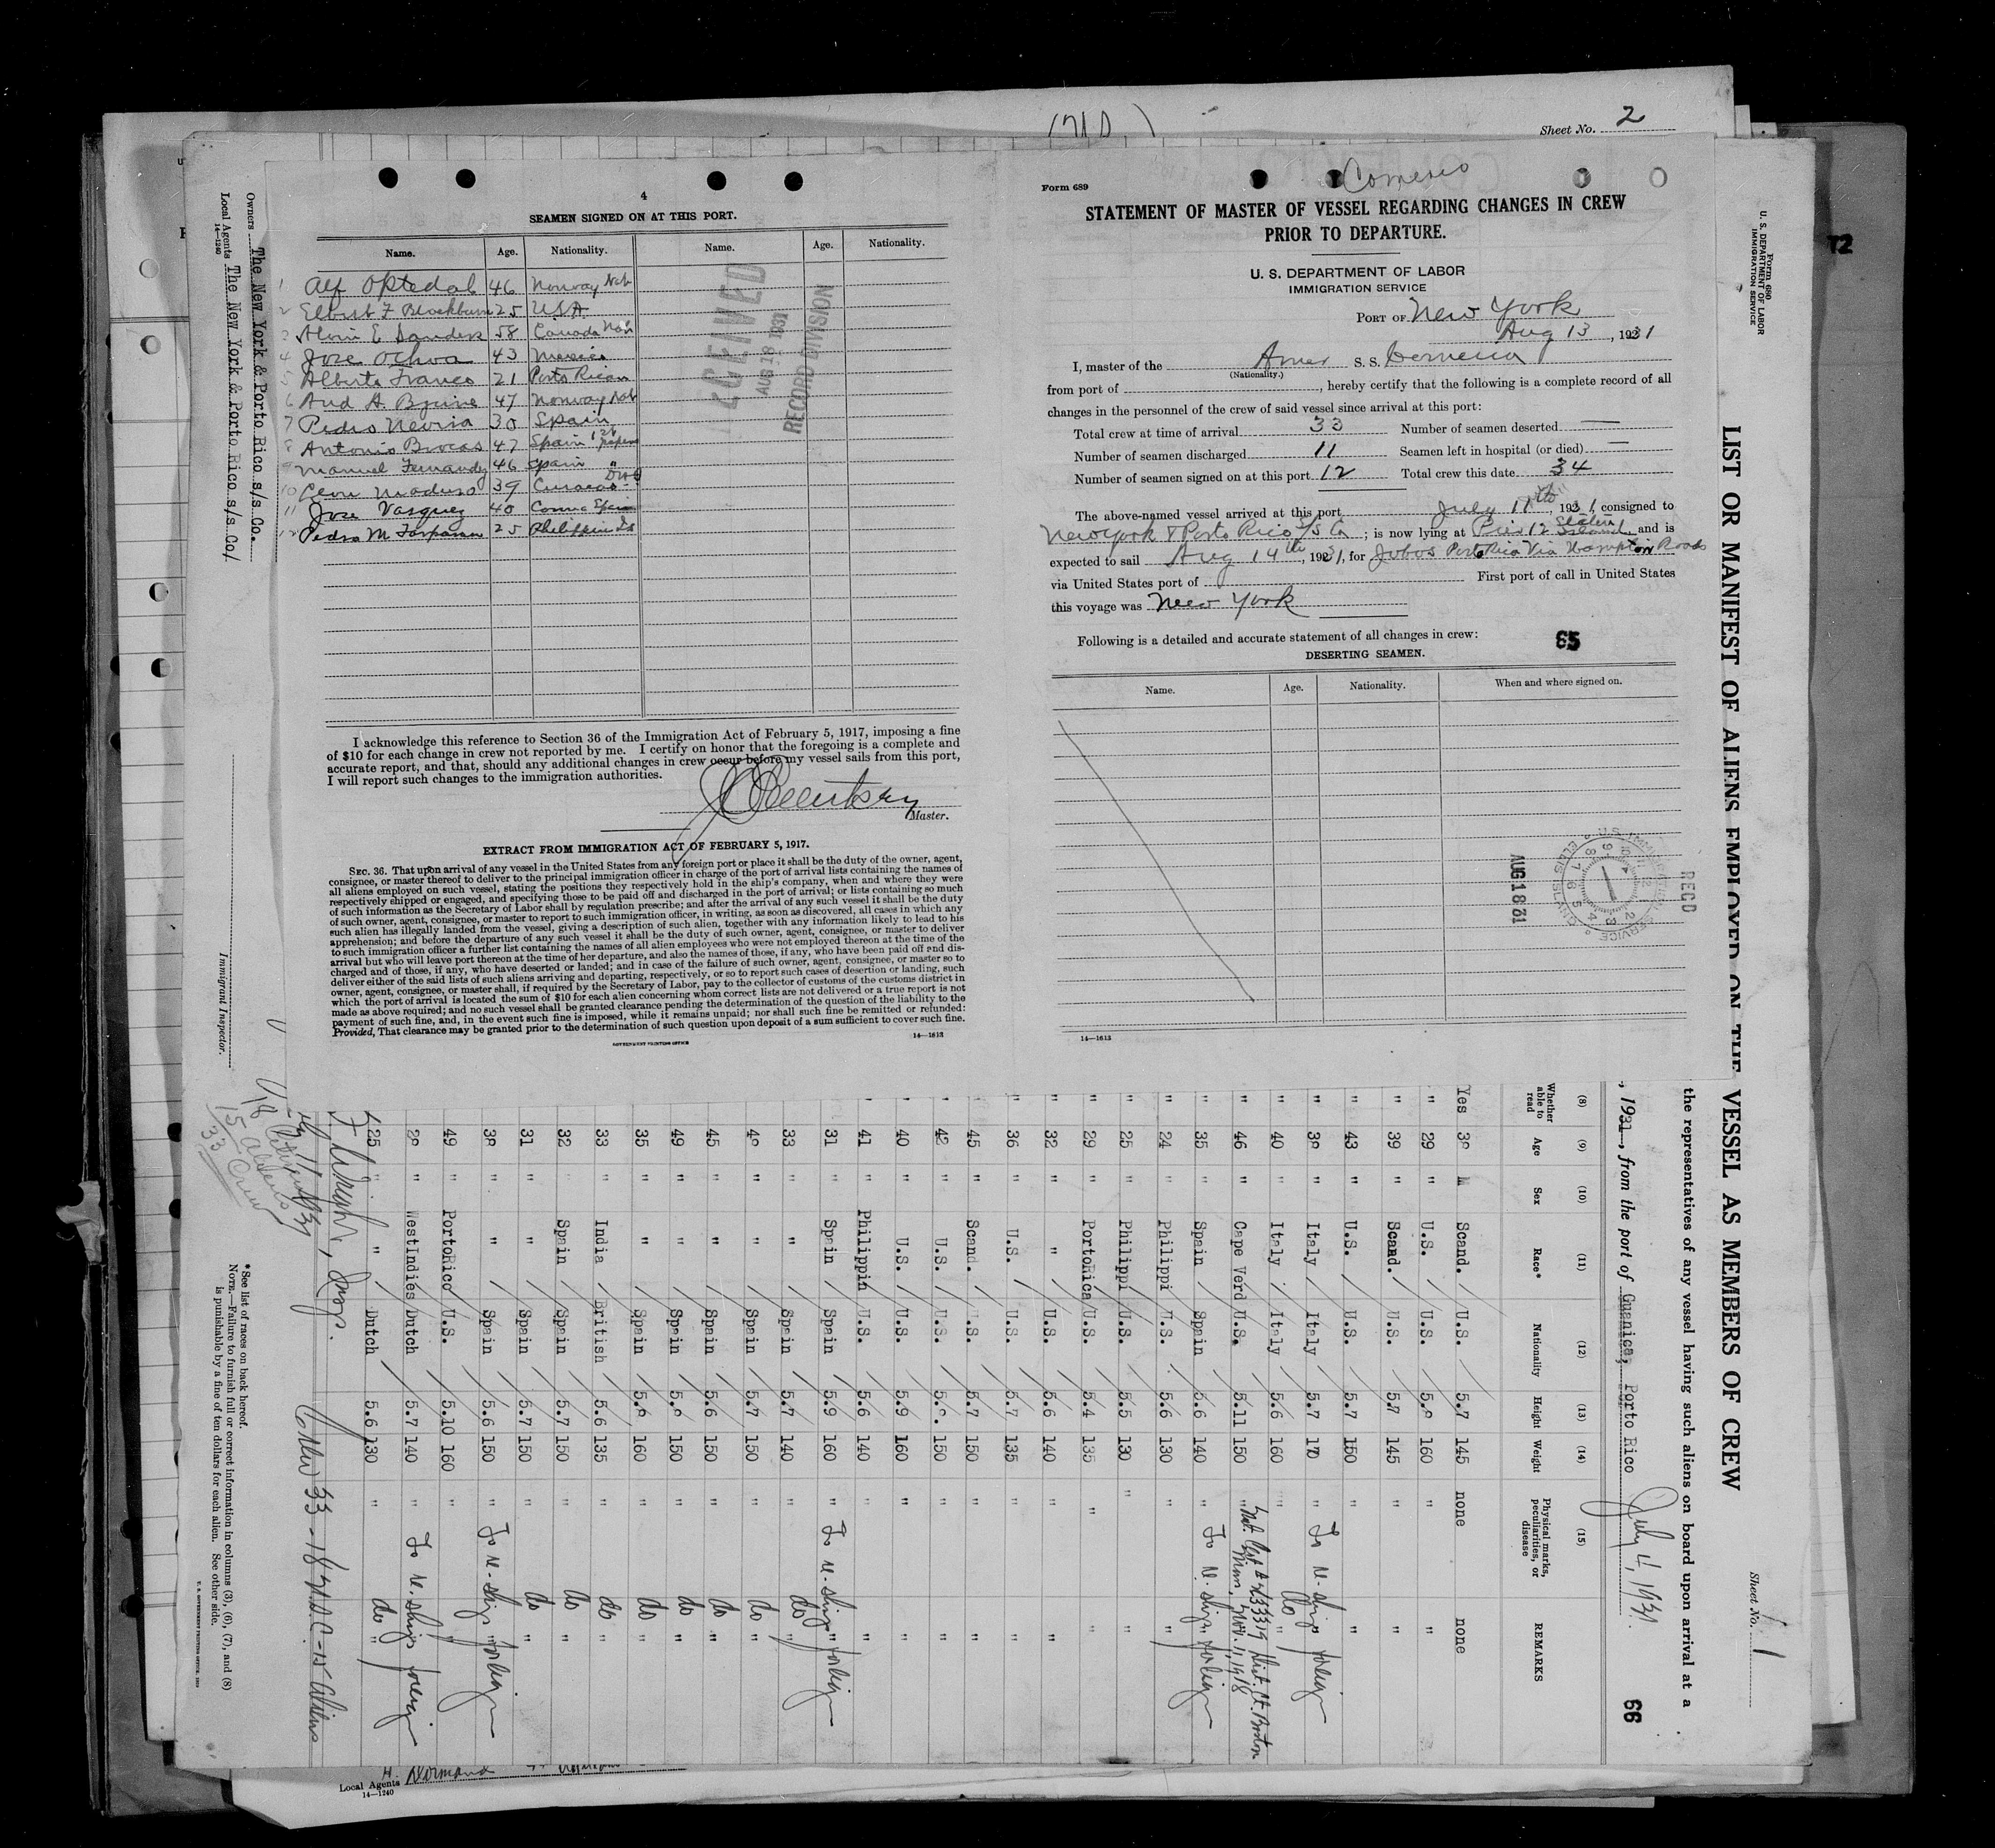 Sheet No. 2
4
SEAMEN SIGNED ON AT THIS PORT.
Name. Age. Nationality. Name. Age. Nationality.
1 Alf Optedal 46 Norway Nat
2 Elbert F Blackburn 25 USA
3 Alvin E Sanders 58 Canada Nat
4 Jose Ochoa 43 Mexico
5 Alberto Franco 21 Porto Rican
6 And A. 47 Norway Nat
7 Pedro 30 Spain
8 Antonio Brocas 47 Spain 1st papers
9 Manuel Fernandez 46 Spain "
10 Leon Maduro 39 Curacao
11 Jose Vasquez 40 Spain
12 Pedro M 25 Philippine Is
RECEIVED
AUG 18 1931
RECORD DIVISION
I acknowledge this reference to Section 36 of the Immigration Act of February 5, 1917, imposing a fine
of $10 for each change in crew not reported by me. I certify on honor that the foregoing is a complete and
accurate report, and that, should any additional changes in crew occur before my vessel sails from this port,
I will report such changes to the immigration authorities.
Master.
EXTRACT FROM IMMIGRATION ACT OF FEBRUARY 5, 1917.
SEC. 36. That upon arrival of any vessel in the United States from any foreign port or place it shall be the duty of the owner, agent,
consignee, or master thereof to deliver to the principal immigration officer in charge of the port of arrival lists containing the names of
all aliens employed on such vessel, stating the positions they respectively hold in the ship's company, when and where they were
respectively shipped or engaged, and specifying those to be paid off and discharged in the port of arrival; or lists containing so much
of such information as the Secretary of Labor shall by regulation prescribe; and after the arrival of any such vessel it shall be the duty
of such owner, agent, consignee, or master to report to such immigration officer, in writing, as soon as discovered, all cases in which any
such alien has illegally landed from the vessel, giving a description of such alien, together with any information likely to lead to his
apprehension; and before the departure of any such vessel it shall be the duty of such owner, agent, consignee, or master to deliver
to such immigration officer a further list containing the names of all alien employees who were not employed thereon at the time of the
arrival but who will leave port thereon at the time of her departure, and also the names of those, if any, who have been paid off and dis-
charged and of those, if any, who have deserted or landed; and in case of the failure of such owner, agent, consignee, or master so to
deliver either of the said lists of such aliens arriving and departing, respectively, or so to report such cases of desertion or landing, such
owner, agent, consignee, or master shall, if required by the Secretary of Labor, pay to the collector of customs of the customs district in
which the port of arrival is located the sum of $10 for each alien concerning whom correct lists are not delivered or a true report is not
made as above required; and no such vessel shall be granted clearance pending the determination of the question of the liability to the
payment of such fine, and, in the event such fine is imposed, while it remains unpaid; nor shall such fine be remitted or refunded:
Provided, That clearance may be granted prior to the determination of such question upon deposit of a sum sufficient to cover such fine.
GOVERNMENT PRINTING OFFICE 14—1613
Form 689
Comerio
STATEMENT OF MASTER OF VESSEL REGARDING CHANGES IN CREW
PRIOR TO DEPARTURE.
U. S. DEPARTMENT OF LABOR
IMMIGRATION SERVICE
PORT OF New York
Aug 13, 1931
I, master of the Amer S. S. Comerio
(Nationality.)
from port of , hereby certify that the following is a complete record of all
changes in the personnel of the crew of said vessel since arrival at this port:
Total crew at time of arrival 33 Number of seamen deserted —
Number of seamen discharged 11 Seamen left in hospital (or died) —
Number of seamen signed on at this port 12 Total crew this date 34
The above-named vessel arrived at this port July 11th, 1931, consigned to
New York & Porto Rico S/S Co ; is now lying at Pier 12 Staten Island and is
expected to sail Aug 14th, 1931, for Jobos Porto Rico Via Hampton Roads
via United States port of First port of call in United States
this voyage was New York
Following is a detailed and accurate statement of all changes in crew: 65
DESERTING SEAMEN.
Name. Age. Nationality. When and where signed on.
U.S. IMMIGRATION SERVICE ELLIS ISLAND
AUG 18 31
REC'D
14—1613
Owners The New York & Porto Rico s/s Co.
Local Agents The New York & Porto Rico s/s Co/
14—1240
Immigrant Inspector.
Form 680
U. S. DEPARTMENT OF LABOR
IMMIGRATION SERVICE
Sheet No. 1
LIST OR MANIFEST OF ALIENS EMPLOYED ON THE VESSEL AS MEMBERS OF CREW
the representatives of any vessel having such aliens on board upon arrival at a
66
, 1931, from the port of Guanica, Porto Rico July 4, 1931
(8) (9) (10) (11) (12) (13) (14) (15)
Whether able to read Age Sex Race* Nationality Height Weight Physical marks, peculiarities, or disease REMARKS
Yes 38 M Scand. U.S. 5.7 145 none none
" 29 " U.S. U.S. 5.8 160 " "
" 39 " Scand. U.S. 5.7 145 " "
" 43 " U.S. U.S. 5.7 150 " "
" 38 " Italy Italy 5.7 170 " To re-ship foreign
" 40 " Italy Italy 5.6 160 " do "
" 46 " Cape Verd U.S. 5.11 150 " Nat. Cert # Dist. Ct. Boston 1918
" 35 " Spain Spain 5.6 140 " To re-ship foreign
" 24 " Philippi U.S. 5.6 130 "
" 25 " Philippi U.S. 5.5 130 " "
" 29 " PortoRica U.S. 5.4 135 " "
" 32 " " U.S. 5.6 140 " "
" 36 " U.S. U.S. 5.7 135 " "
" 45 " Scand. U.S. 5.7 150 " "
" 42 " U.S. U.S. 5.8 150 " "
" 40 " U.S. U.S. 5.9 160 " "
" 41 " Philippin U.S. 5.6 140 " "
31 " Spain Spain 5.9 160 " To re-ship foreign
33 " " Spain 5.7 140 " do "
48 " " Spain 5.7 150 " do "
45 " " Spain 5.6 150 " do "
49 " " Spain 5.8 150 " do "
35 " " Spain 5.8 160 " do "
33 " India British 5.6 135 " do "
32 " Spain Spain 5.7 150 " do "
31 " " Spain 5.7 150 " do "
38 " " Spain 5.6 150 " To re-ship foreign
49 " PortoRico U.S. 5.10 160 " "
28 " WestIndies Dutch 5.7 140 " To re-ship foreign
25 " " Dutch 5.6 130 " do "
Wright, Insp.
18 Citizens
15 Aliens
33 Crew
Crew 33 - 18 U.S.C. - 15 Aliens
*See list of races on back hereof.
NOTE.—Failure to furnish full or correct information in columns (3), (6), (7), and (8)
is punishable by a fine of ten dollars for each alien. See other side.
Local Agents
14—1240
T2